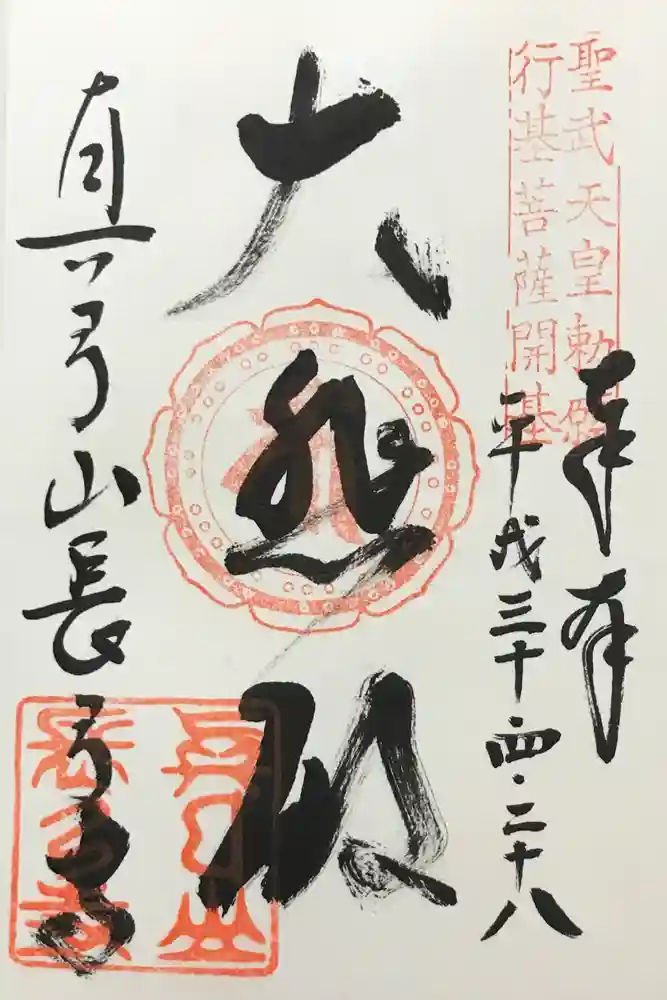 聖武天皇勅願
行基菩薩開基
奉拝
平成三十 四・二十八
大悲殿
真弓山長弓寺